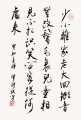 少小離家老大回鄉音
無改鬢毛衰兒童相
見不相識笑問客從何
處來